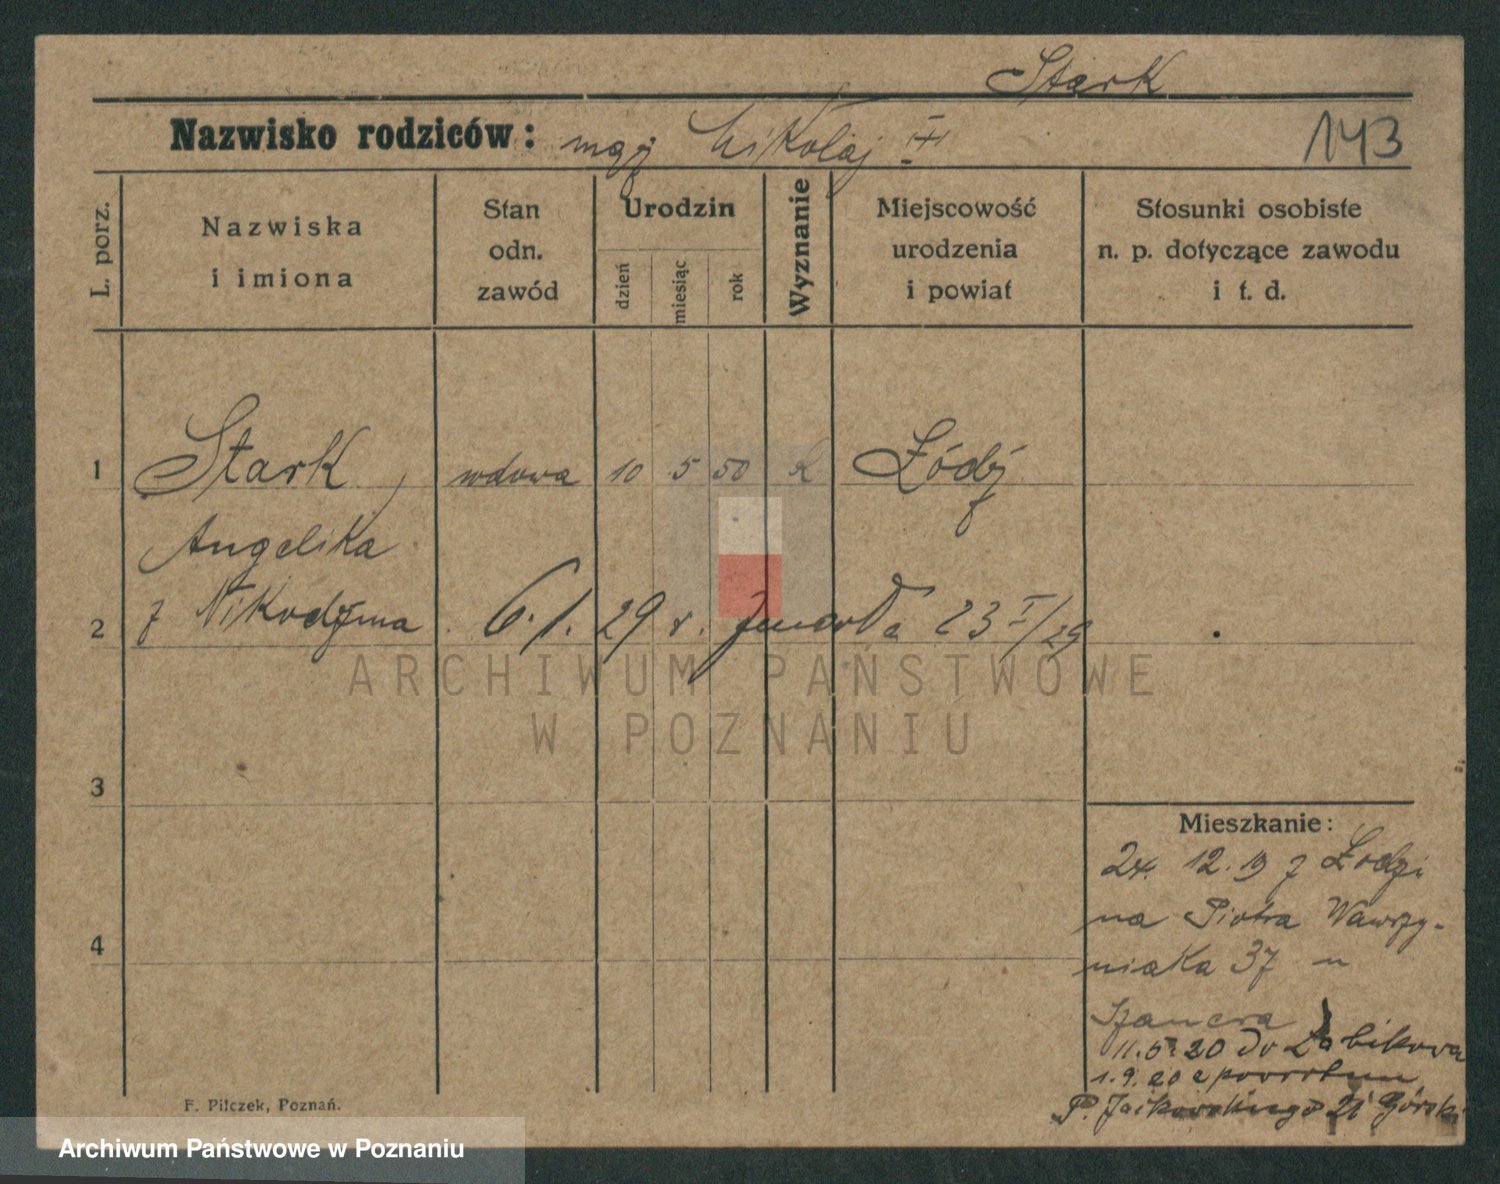 Stark
Nazwisko rodziców: mąż Mikołaj III
143
L. porz.
Nazwiska
i imiona
Stan
odn.
zawód
Urodzin
dzień
miesiąc
rok
Wyznanie
Miejscowość
urodzenia
i powiat
Stosunki osobiste
n. p. dotyczące zawodu
i t. d.
1 Stark, wdowa 10 5 50 k Łódź
Angelika
2 z Nikodyma 6.1. 29 r. zmarła 23 I/29
ARCHIWUM PAŃSTWOWE
W POZNANIU
3
Mieszkanie:
24. 12. 19 z Łodzi
na Piotra Wawrzy-
4
niaka 37 u
Szancra
11.5.20 do Żabikowa
1.9.20 z powrotem
P. Jackowskiego 21 Górski
F. Piłczek, Poznań.
Archiwum Państwowe w Poznaniu